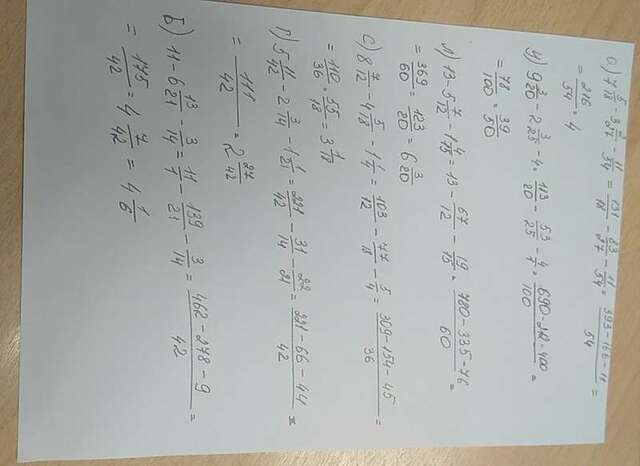 о) 7 5/18 - 3 2/27 - 11/54 = 131/18 - 83/27 - 11/54 = 393-166-11/54 =
= 216/54 = 4
у) 9 3/20 - 2 3/25 - 4 = 113/20 - 53/25 - 4/1 = 690-212-400/100 =
= 78/100 = 39/50
л) 13 - 5 7/12 - 1 4/15 = 13 - 67/12 - 19/15 = 780-335-76/60
= 369/60 = 123/20 = 6 3/20
с) 8 7/12 - 4 5/18 - 1 1/4 = 103/12 - 77/18 - 5/4 = 309-154-45/36 =
= 110/36 = 55/18 = 3 1/18
П) 5 11/42 - 2 3/14 - 1 1/21 = 221/42 - 31/14 - 22/21 = 221-66-44/42 =
= 111/42 = 2 27/42
Б) 11 - 6 13/21 - 3/14 = 11/1 - 139/21 - 3/14 = 462-278-9/42 =
= 175/42 = 4 7/42 = 4 1/6